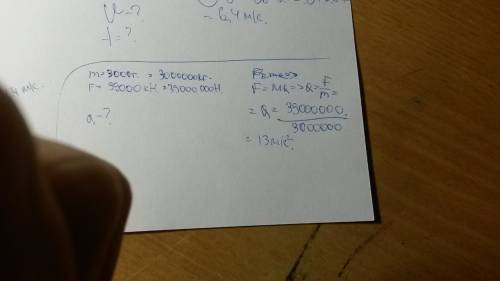 V=?
= 6,4 м/с.
t=?
m=3000т. = 3000000кг.
F = 39000кН. = 39000000Н.
a-?
F = ma => a = F/m =
= a = 39000000/3000000
= 13 м/с².